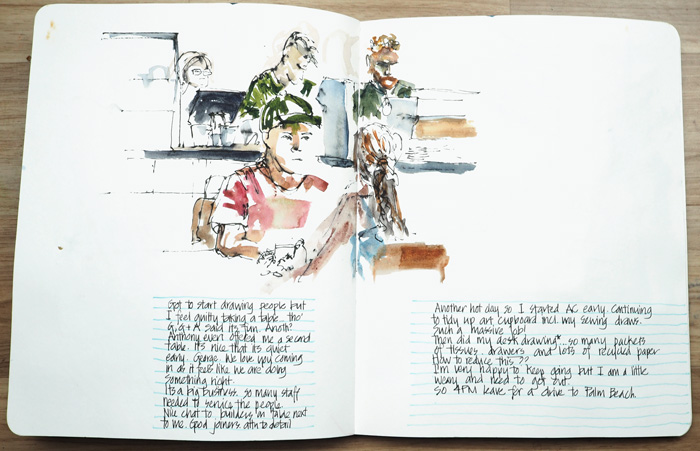 Got to start drawing people but
I feel guilty taking a table.. tho'
G, G + A said its fun.
Anthony even offered me a second
table. It's nice that its quiet
early. George: We love you coming
in as it feels like we are doing
something right.
Its a big business.. so many staff
needed to service the people.
Nice chat to builders on table next
to me. Good joiners: attn to detail
Another hot day so I started AC early. Continuing
to tidy up art cupboard incl. my sewing draws.
Such a massive job!
Then did my desk drawing*.. so many packets
of tissues.. drawers and lots of recycled paper
How to reduce this ??
I'm very happy to keep going but I am a little
weary and need to get out.
So 4PM leave for a drive to Palm Beach.